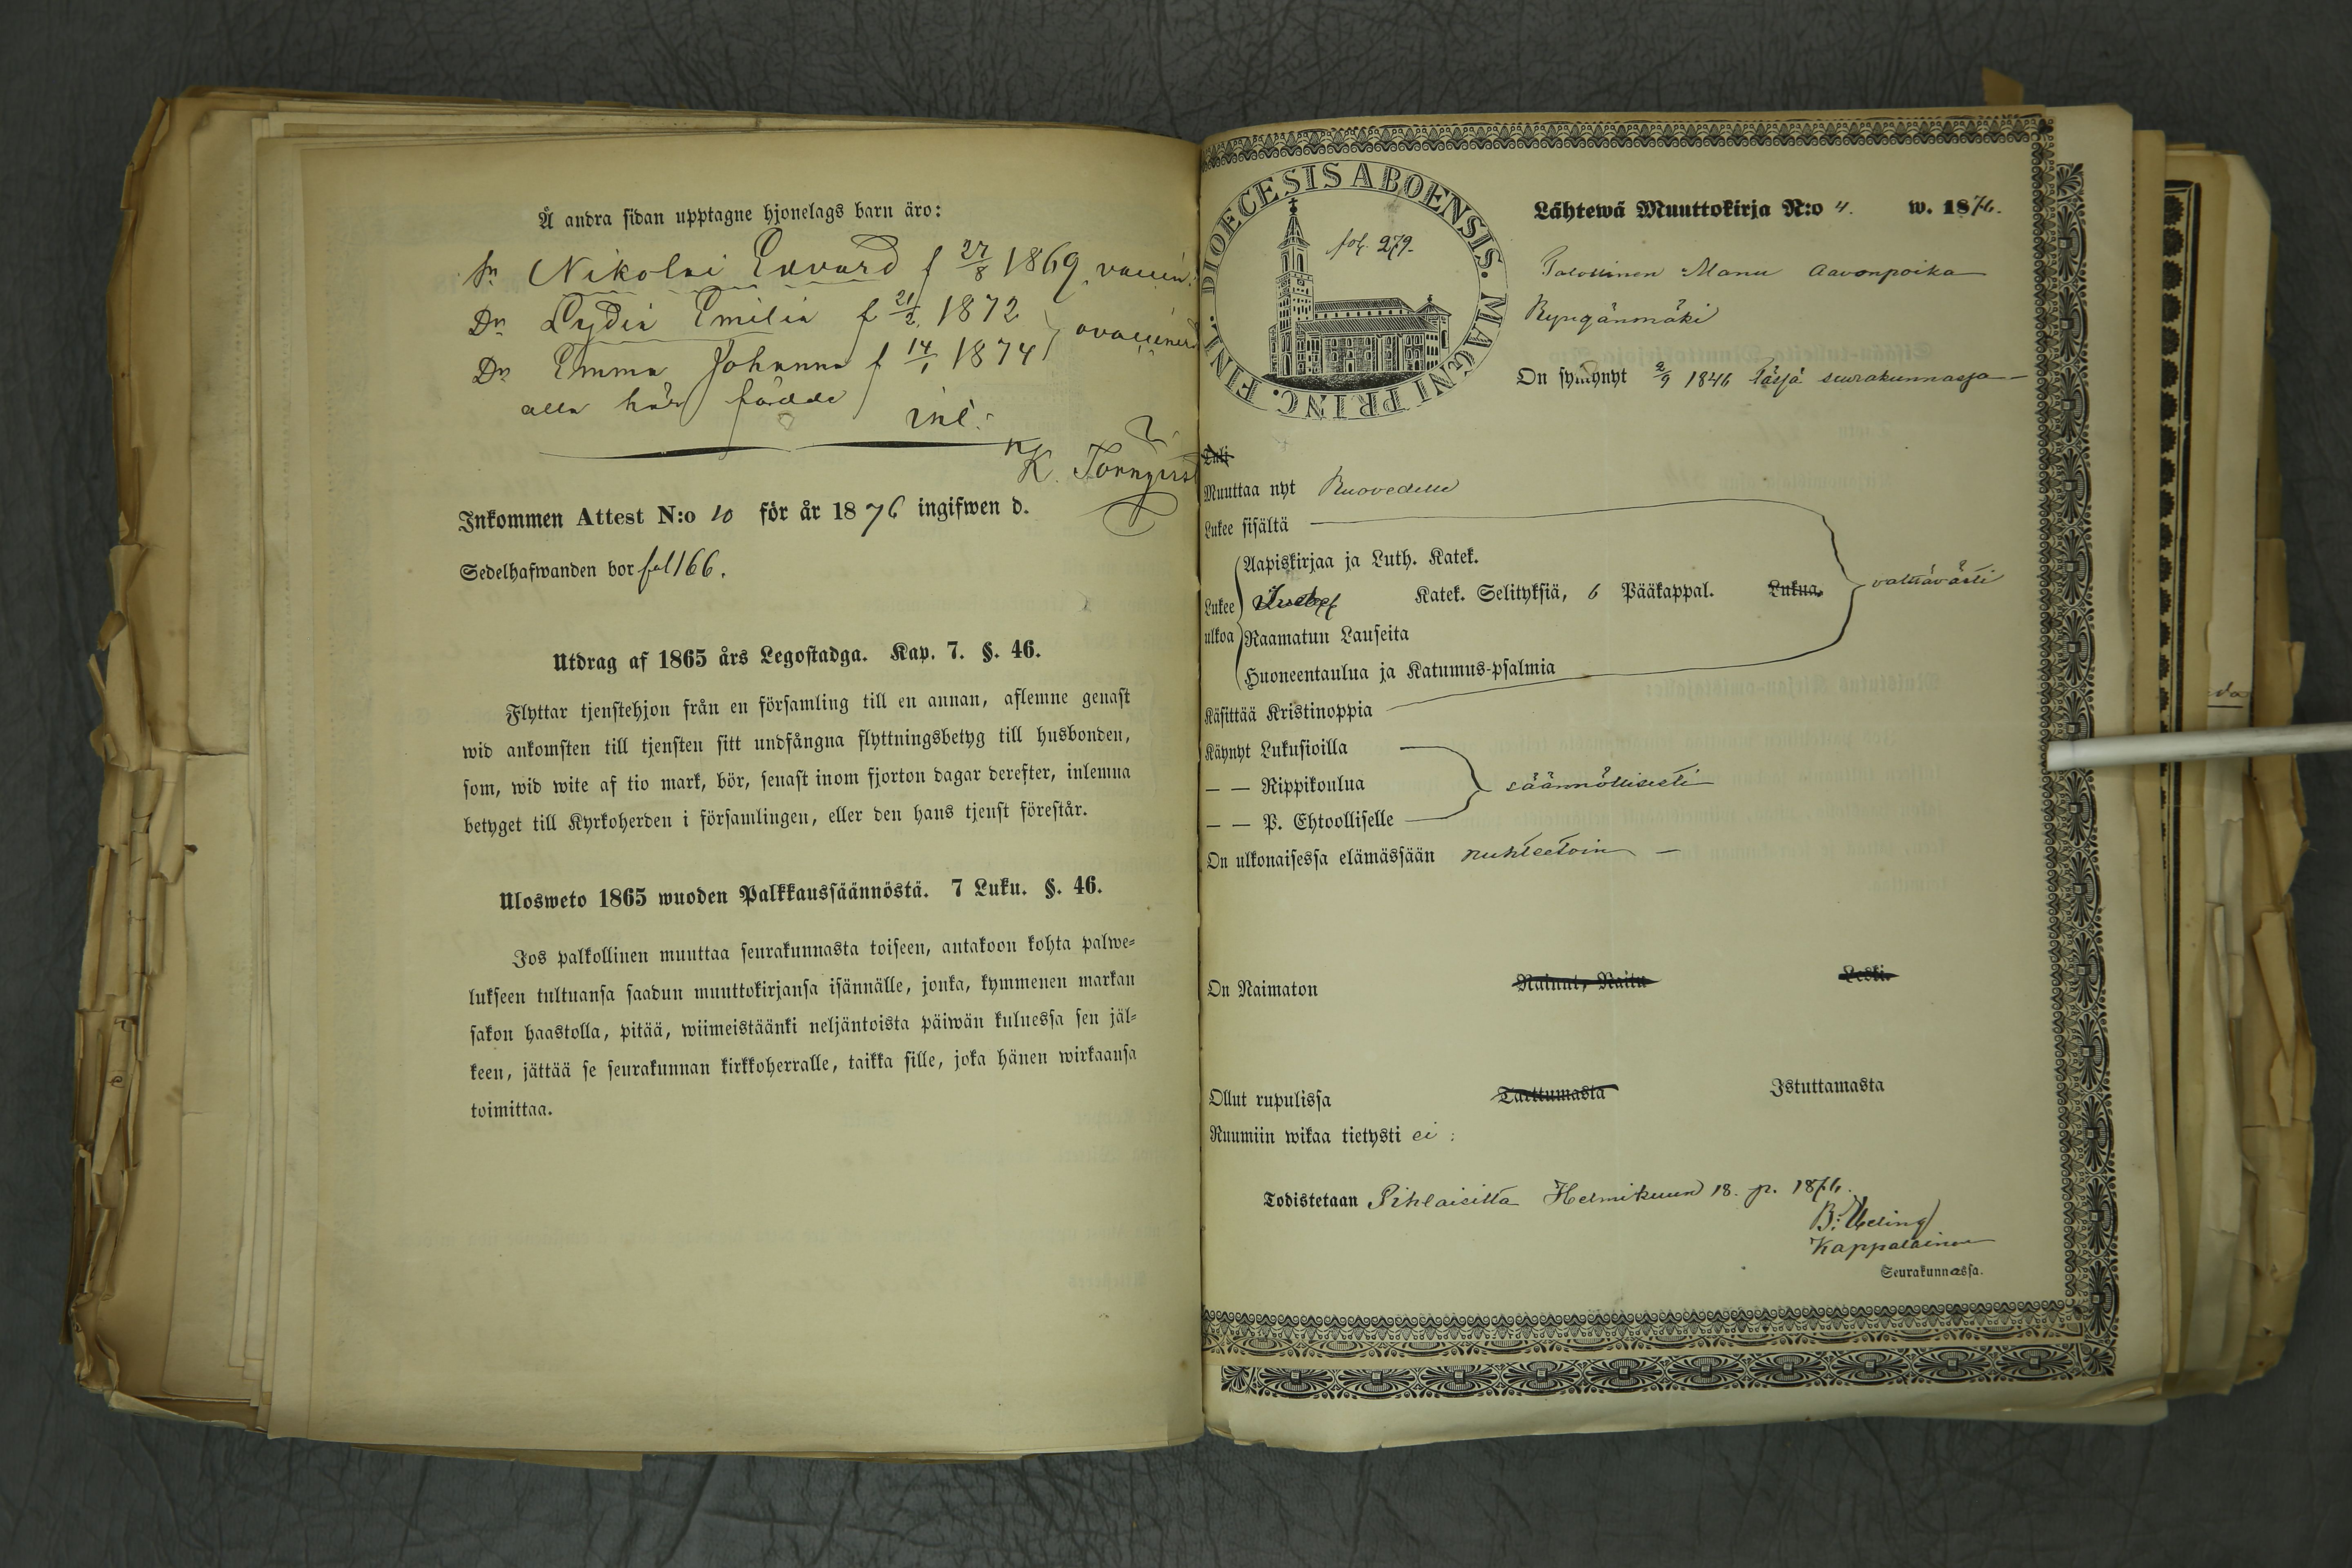 Å andra sidan upptagne hjonelags barn äro:
Sn Nikolai Edvard f 27/8 1869, vaccin.
Dr Lydia Emilia f 21/2 1872
Dr Emma Johanna f 14/1 1874 } ovaccinerd
alla här födde
K. Törnqvist
Inkommen Attest N:o 10 för år 1876 ingifwen d.
Sedelhafwanden bor fol 166.
Utdrag af 1865 års Legostadga. Kap. 7. §. 46.
Flyttar tjenstehjon från en församling till en annan, aflemne genast
wid ankomsten till tjensten sitt undfångna flyttningsbetyg till husbonden,
som, wid wite af tio mark, bör, senast inom fjorton dagar derefter, inlemna
betyget till Kyrkoherden i församlingen, eller den hans tjenst förestår.
Ulosweto 1865 wuoden Palkkaussäännöstä. 7 Luku. §. 46.
Jos palkollinen muuttaa seurakunnasta toiseen, antakoon kohta palwe-
lukseen tultuansa saadun muuttokirjansa isännälle, jonka, kymmenen markan
sakon haastolla, pitää, wiimeistäänki neljäntoista päiwän kuluessa sen jäl-
keen, jättää se seurakunnan kirkkoherralle, taikka sille, joka hänen wirkaansa
toimittaa.
DIOECESIS ABOENSIS. MAGNI PRINC. FINL.
fol. 279.
Lähtewä Muuttokirja N:o 4. w. 1876.
Manu Aavonpoika
Ryngänmäki
On syntynyt 2/9 1846 tässä seurakunnassa
Tuli
Muuttaa nyt Ruovedelle
Lukee sisältä
Aapiskirjaa ja Luth. Katek.
Lukee ulkoa Katek. Selityksiä, 6 Pääkappal. Lukua. välttävästi
Raamatun Lauseita
Huoneentaulua ja Katumus-psalmia
Käsittää Kristinoppia
Käynyt Lukusioilla
— — Rippikoulua säännöllisesti
— — P. Ehtoolliselle
On ulkonaisessa elämässään nuhteetoin
On Naimaton Nainut, Naitu Leski.
Ollut rupulissa Tarttumasta Istuttamasta
Ruumiin wikaa tietysti ei
Todistetaan Pihlaisilta Helmikuun 18. p. 1876.
Kappalainen
Seurakunnassa.